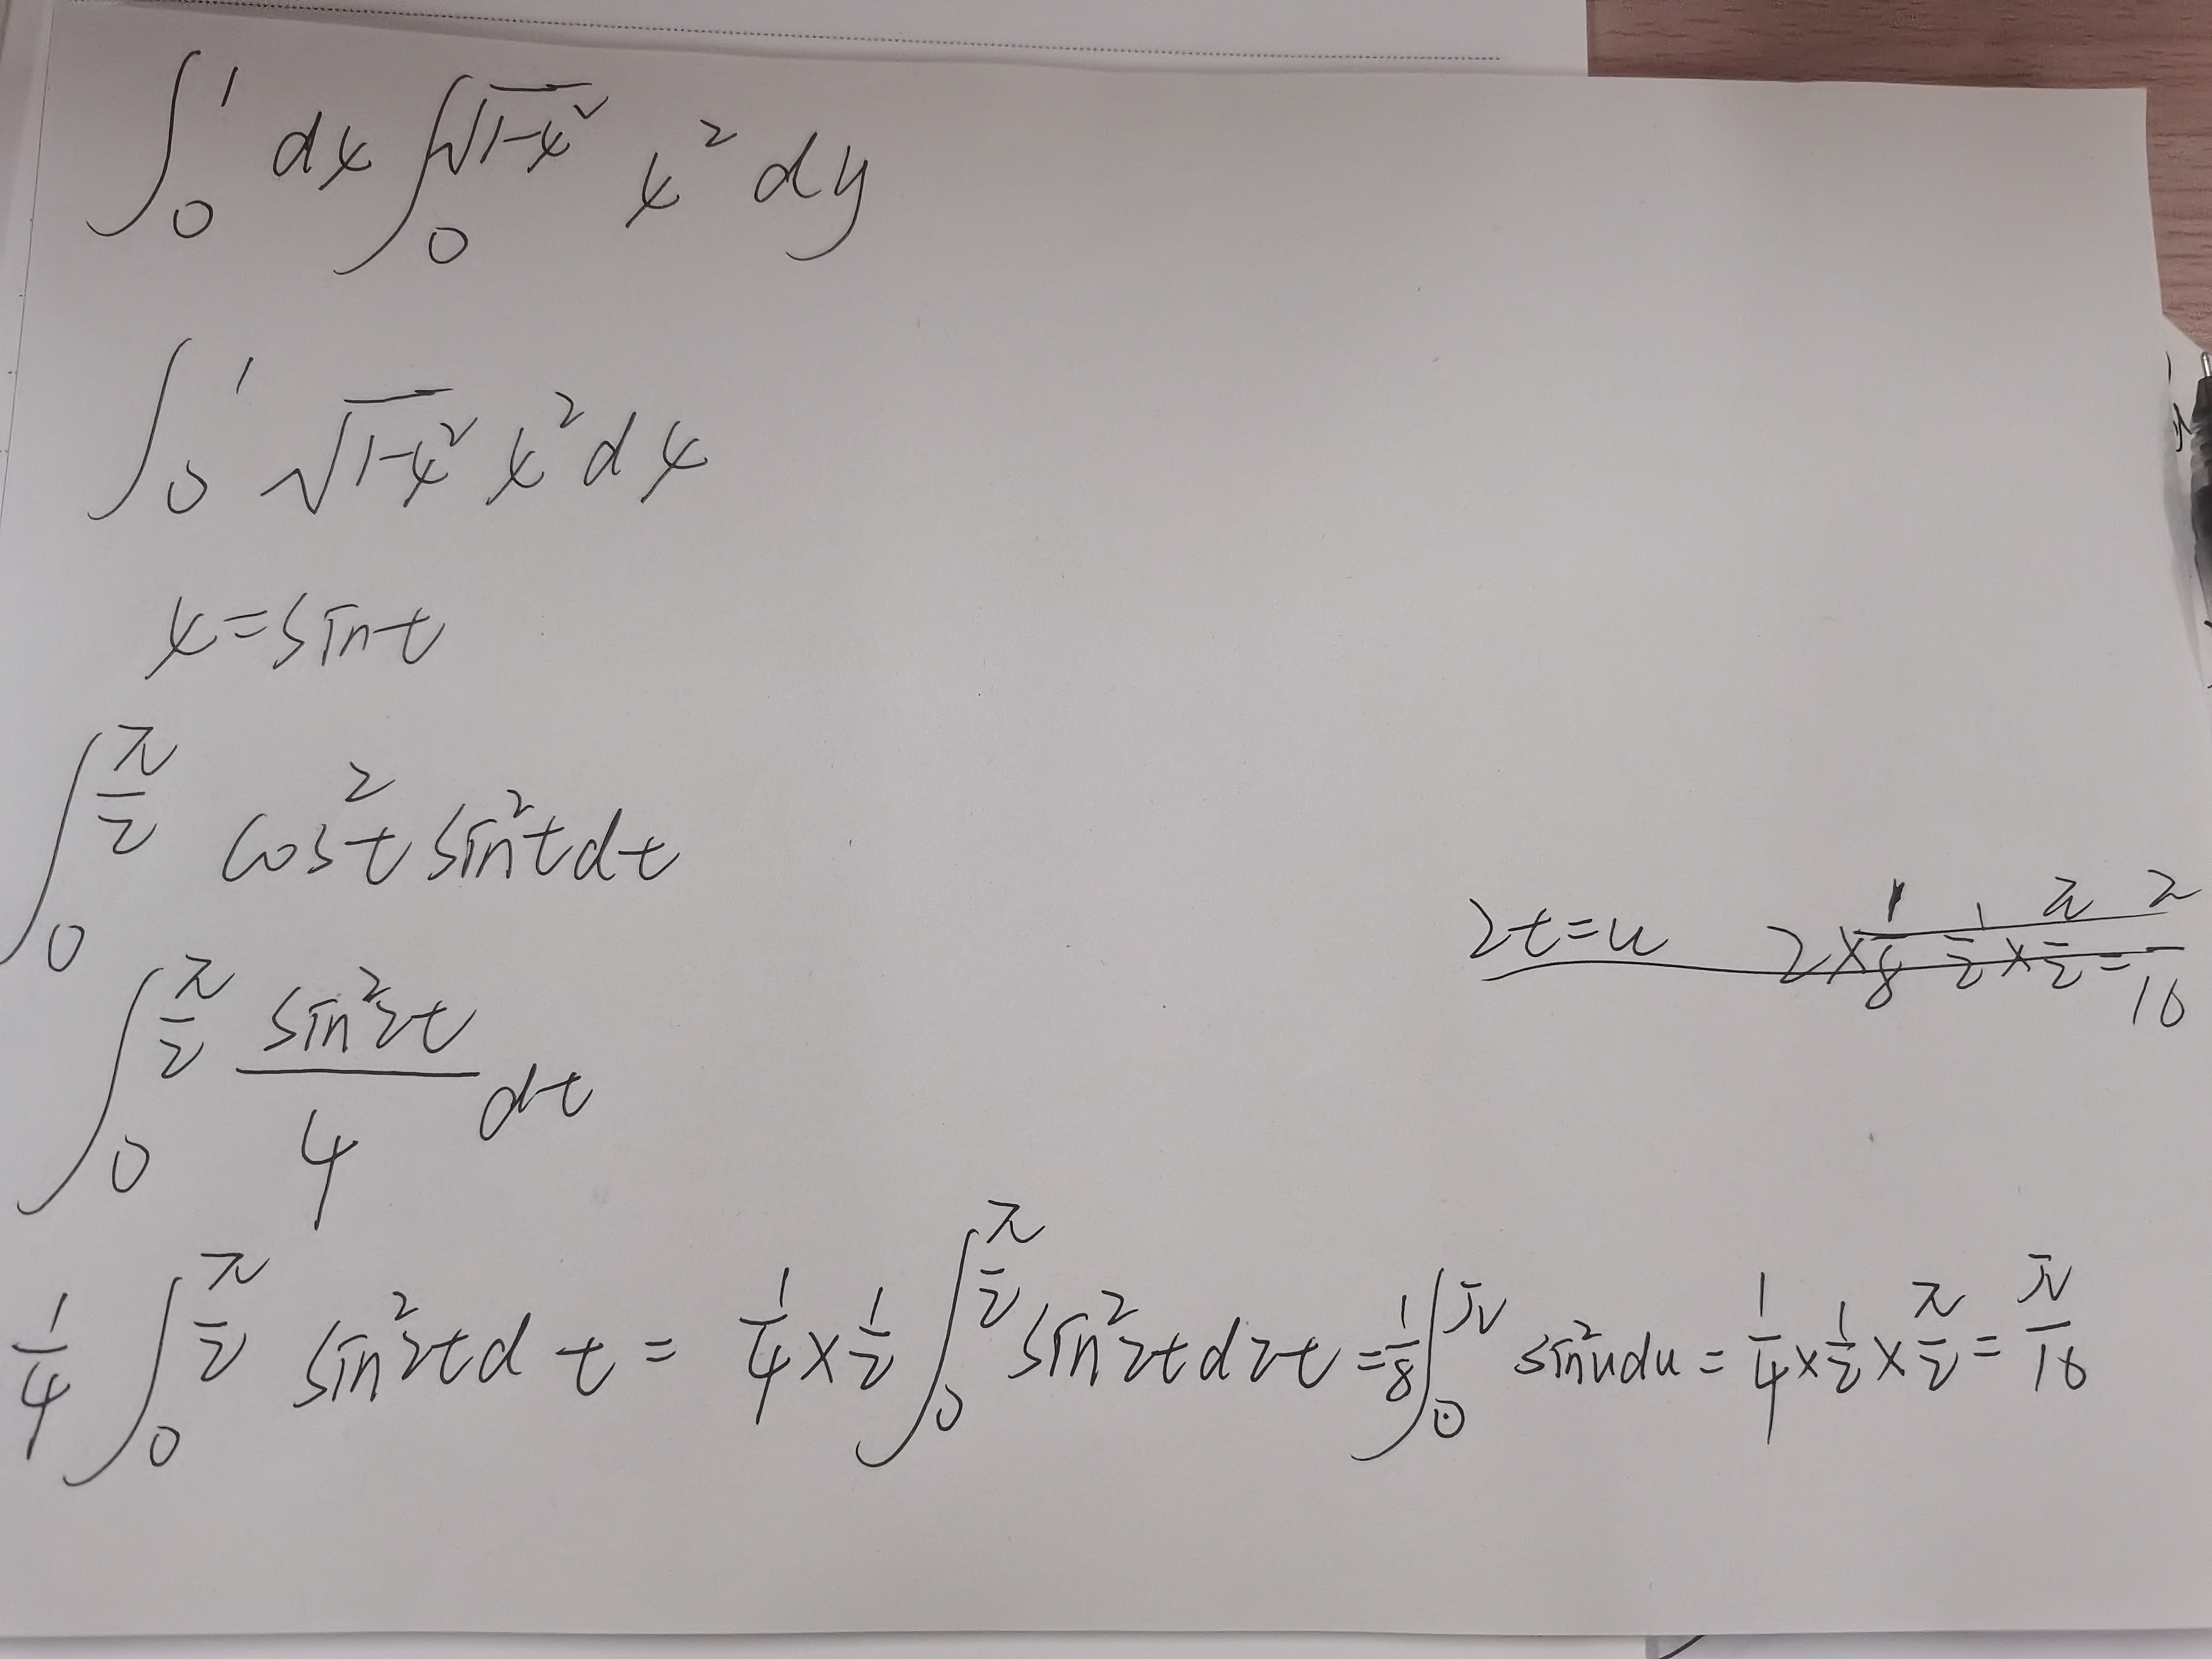 ∫₀¹ dx ∫₀^√(1-x²) x² dy
∫₀¹ √(1-x²) x² dx
x = sin t
∫₀^(π/2) cos²t sin²t dt
2t = u 2 × 1/8 1/2 × π/2 = π/16
∫₀^(π/2) sin²2t/4 dt
1/4 ∫₀^(π/2) sin²2t d t = 1/4 × 1/2 ∫₀^(π/2) sin²2t d2t = 1/8 ∫₀^π sin²u du = 1/4 × 1/2 × π/2 = π/16